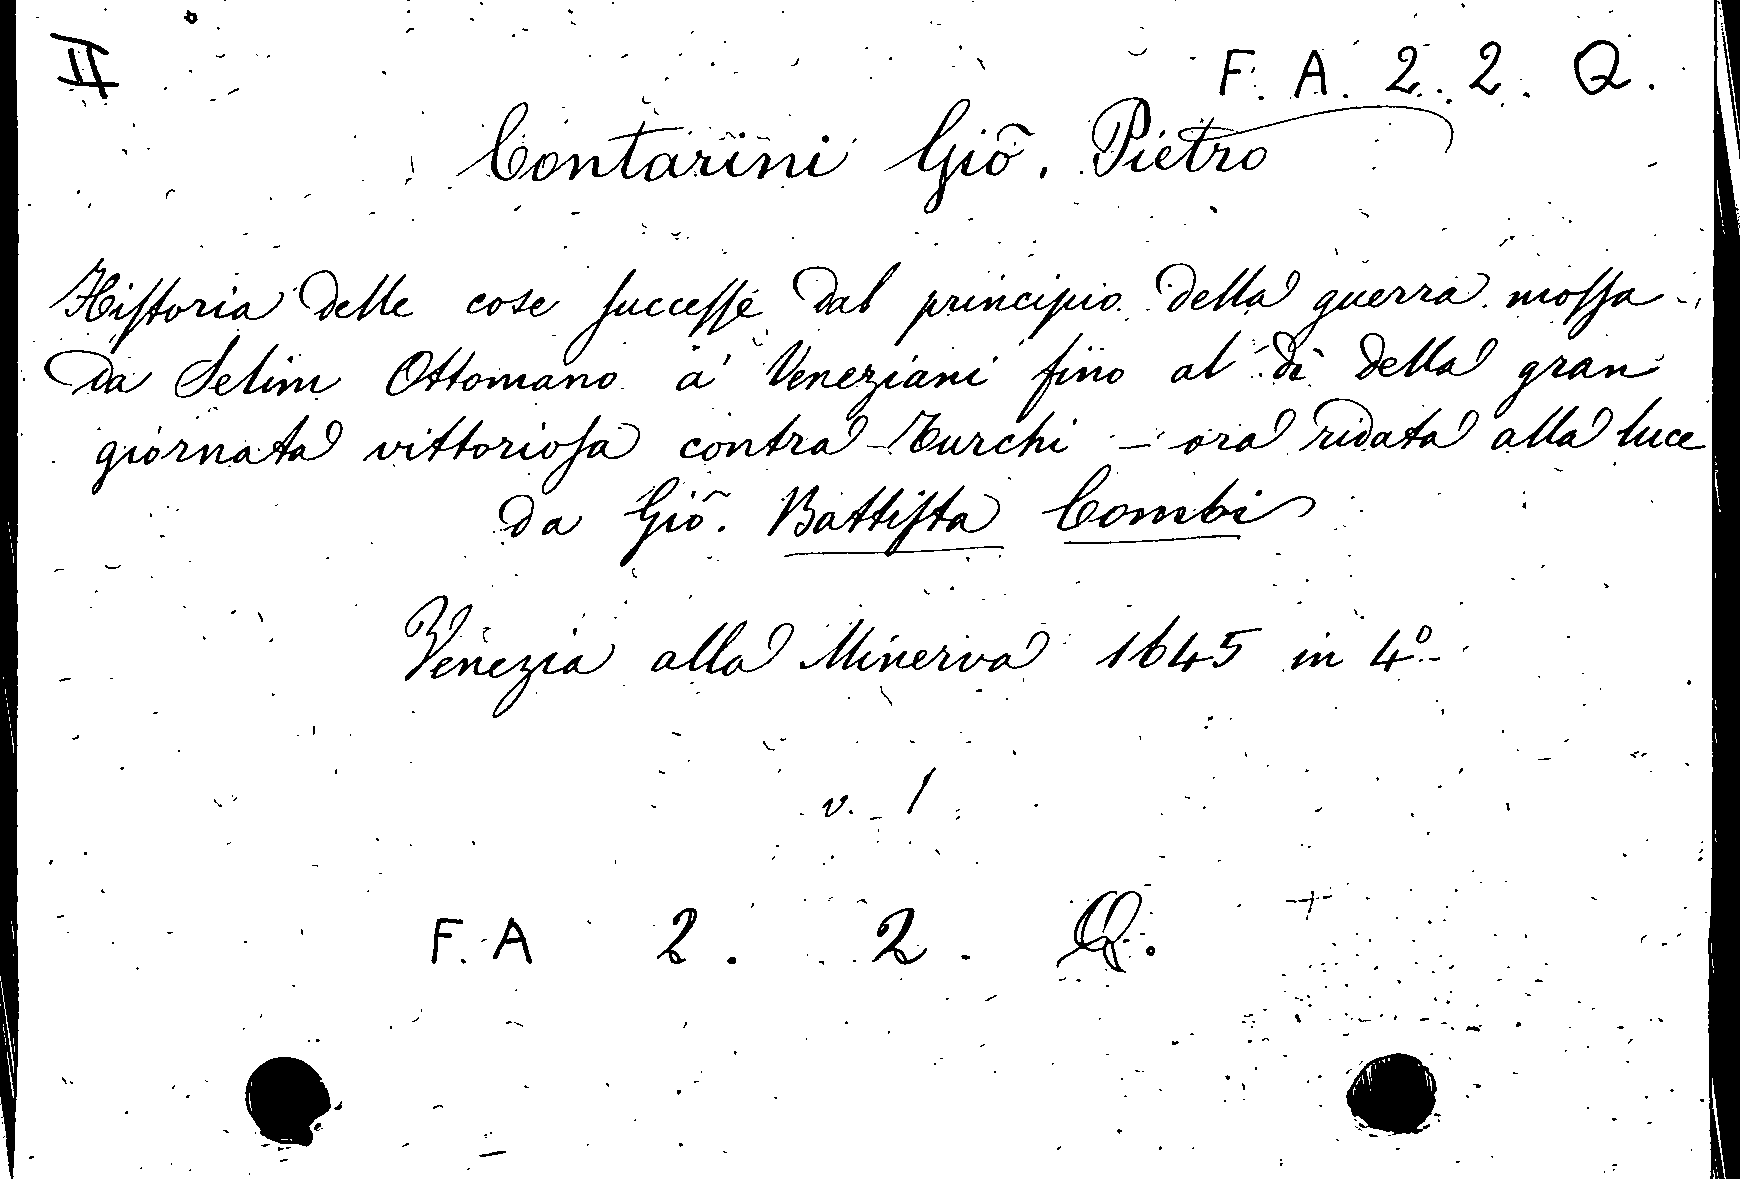 II
F. A. 2. 2. Q.
Contarini Giõ. Pietro
Hiſtoria delle cose ſucceſſe dal principio della guerra moſſa
da Selim Ottomano a' Veneziani fino al dì della gran
giornata vittorioſa contra Turchi – ora ridata alla luce
da Giõ. Battiſta Combi
Venezia alla Minerva 1645 in 4º
v. 1
F. A 2. 2. Q.